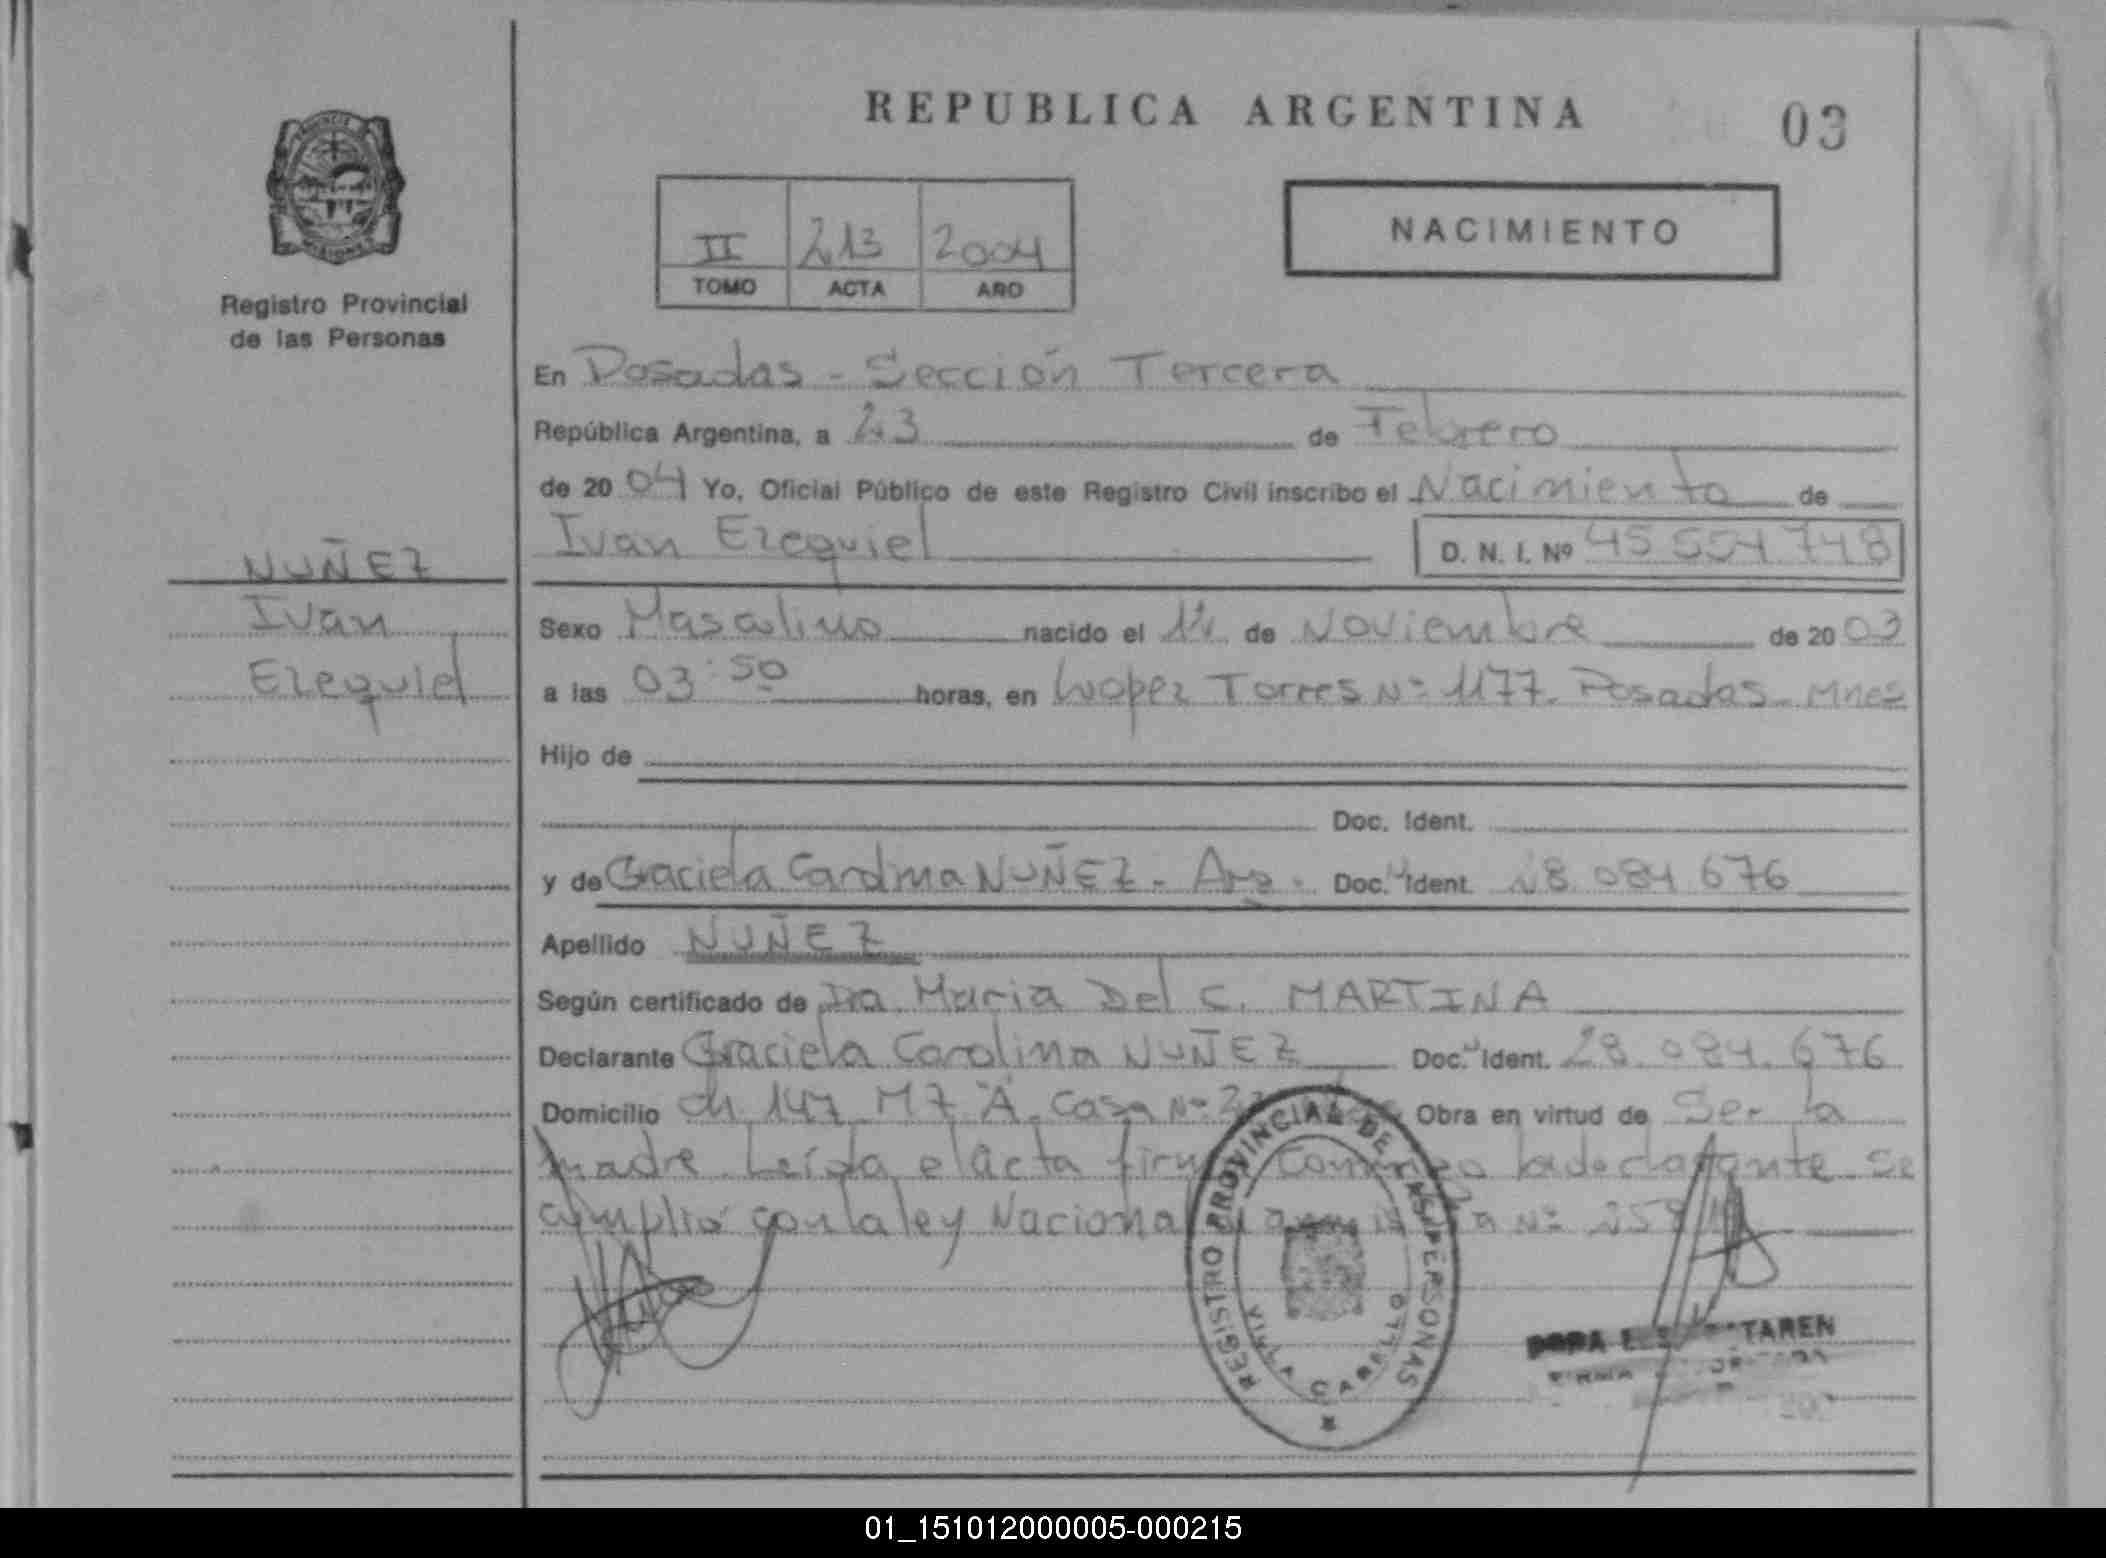 REPUBLICA ARGENTINA
03
II 213 2004
TOMO ACTA AÑO
NACIMIENTO
PROVINCIA DE MISIONES
Registro Provincial
de las Personas
En Posadas - Sección Tercera
República Argentina, a 23 de Febrero
de 20 04 Yo, Oficial Público de este Registro Civil inscribo el Nacimiento de
Ivan Ezequiel D. N. I. Nº 45 554 748
NUÑEZ
Ivan
Ezequiel
Sexo Masculino nacido el 14 de Noviembre de 20 03
a las 03:50 horas, en Lopez Torres Nº 1177. Posadas - Mnes
Hijo de
Doc. Ident.
y de Graciela Carolina NUÑEZ - Arg. Doc. Ident. 28.084.676
Apellido NUÑEZ
Según certificado de Dra. Maria Del C. MARTINA
Declarante Graciela Carolina NUÑEZ Doc. Ident. 28.084.676
Domicilio Ch 147 MZ "A" Casa Nº Obra en virtud de Ser la
madre Leída el acta firma conmigo la declarante se
cumplió con la ley Nacional Nº
REGISTRO PROVINCIAL DE LAS PERSONAS
VILLA CABELLO
TAREN
FIRMA
01_151012000005-000215